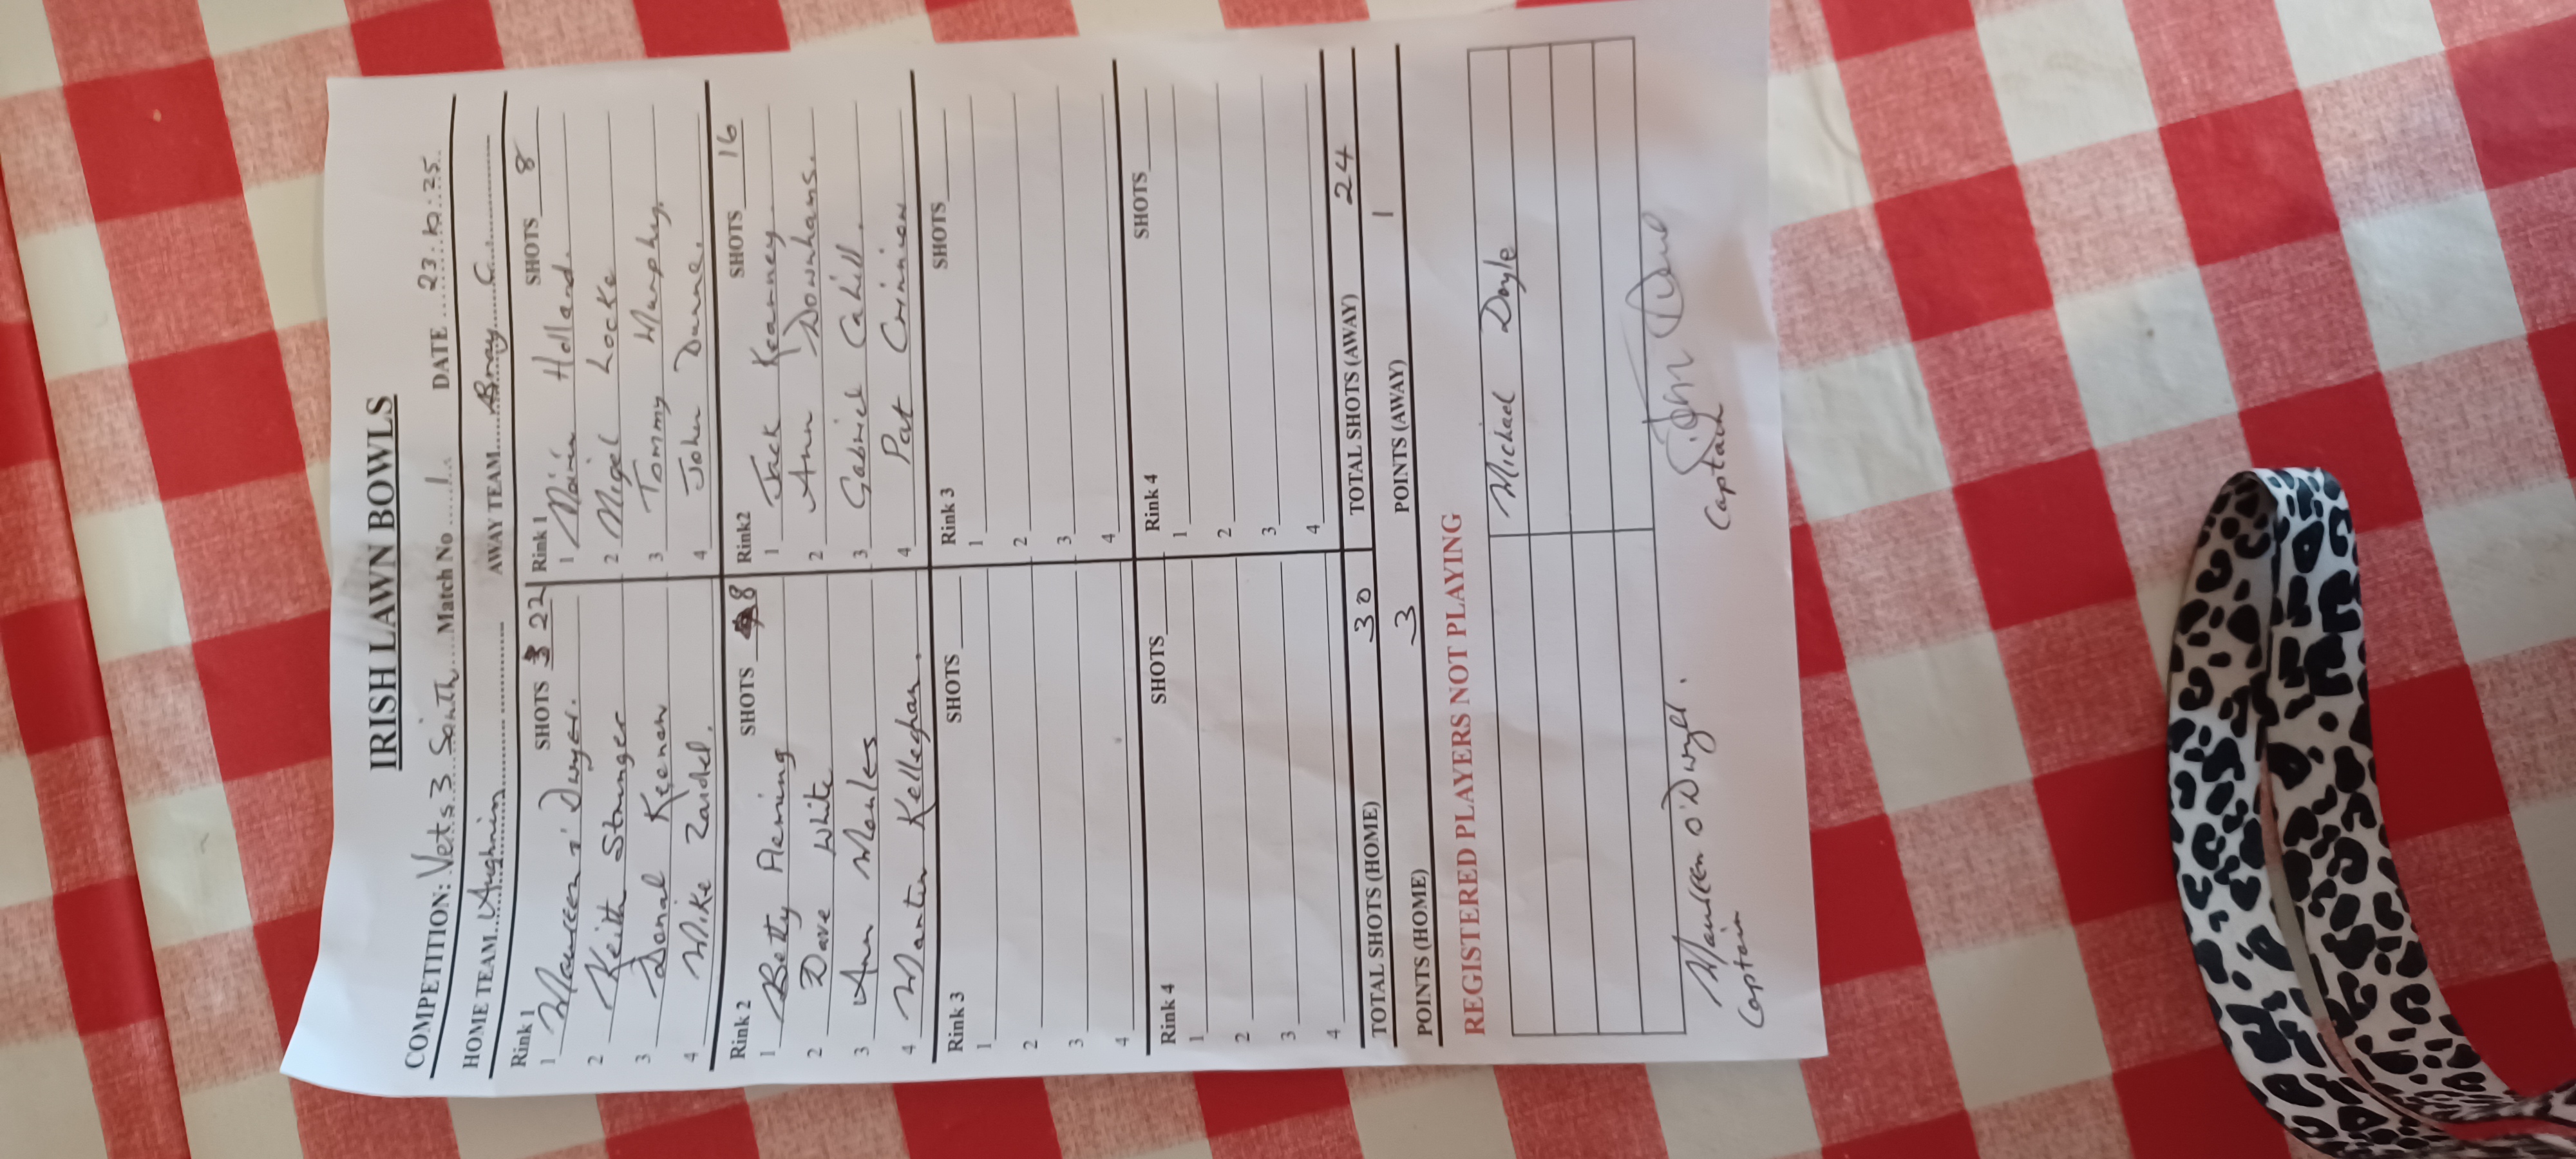 IRISH LAWN BOWLS
COMPETITION: Vets 3 South Match No 1 DATE 23.
HOME TEAM Aughrim AWAY TEAM Bray C
Rink 1 SHOTS 22 Rink 1 SHOTS 8
1 Maureen O'Dwyer. 1 Holland.
2 Keith Stringer 2 Nigel Locke
3 Donal Keenan 3 Tommy Murphy.
4 Mike Zaidel. 4 John Dunne.
Rink 2 SHOTS 8 Rink2 SHOTS 16
1 Betty Fleming 1 Jack Keanney
2 Dave White 2 Ann Downhams.
3 Ann Moules 3 Gabriel Cahill.
4 Martin Kelleghan. 4 Pat Crinnion
Rink 3 SHOTS Rink 3 SHOTS
1 1
2 2
3 3
4 4
Rink 4 SHOTS Rink 4 SHOTS
1 1
2 2
3 3
4 4
TOTAL SHOTS (HOME) 30 TOTAL SHOTS (AWAY) 24
POINTS (HOME) 3 POINTS (AWAY) 1
REGISTERED PLAYERS NOT PLAYING
Michael Doyle
Maureen O'Dwyer. John Dunne
Captain Captain